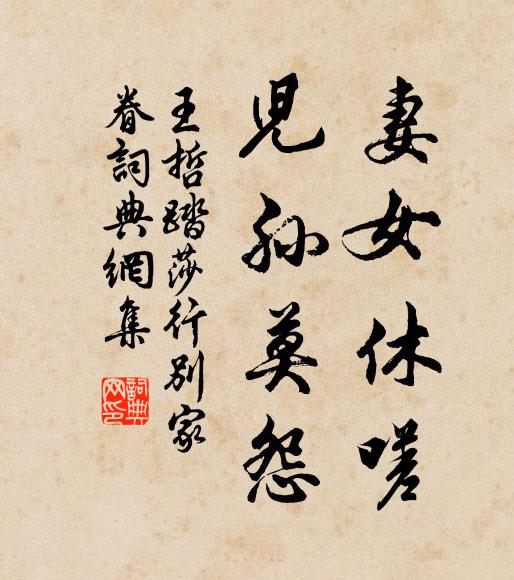 妻女休嗟
兒孫莫怨
王哲踏莎行別家
眷詞典網集
詞典
网印